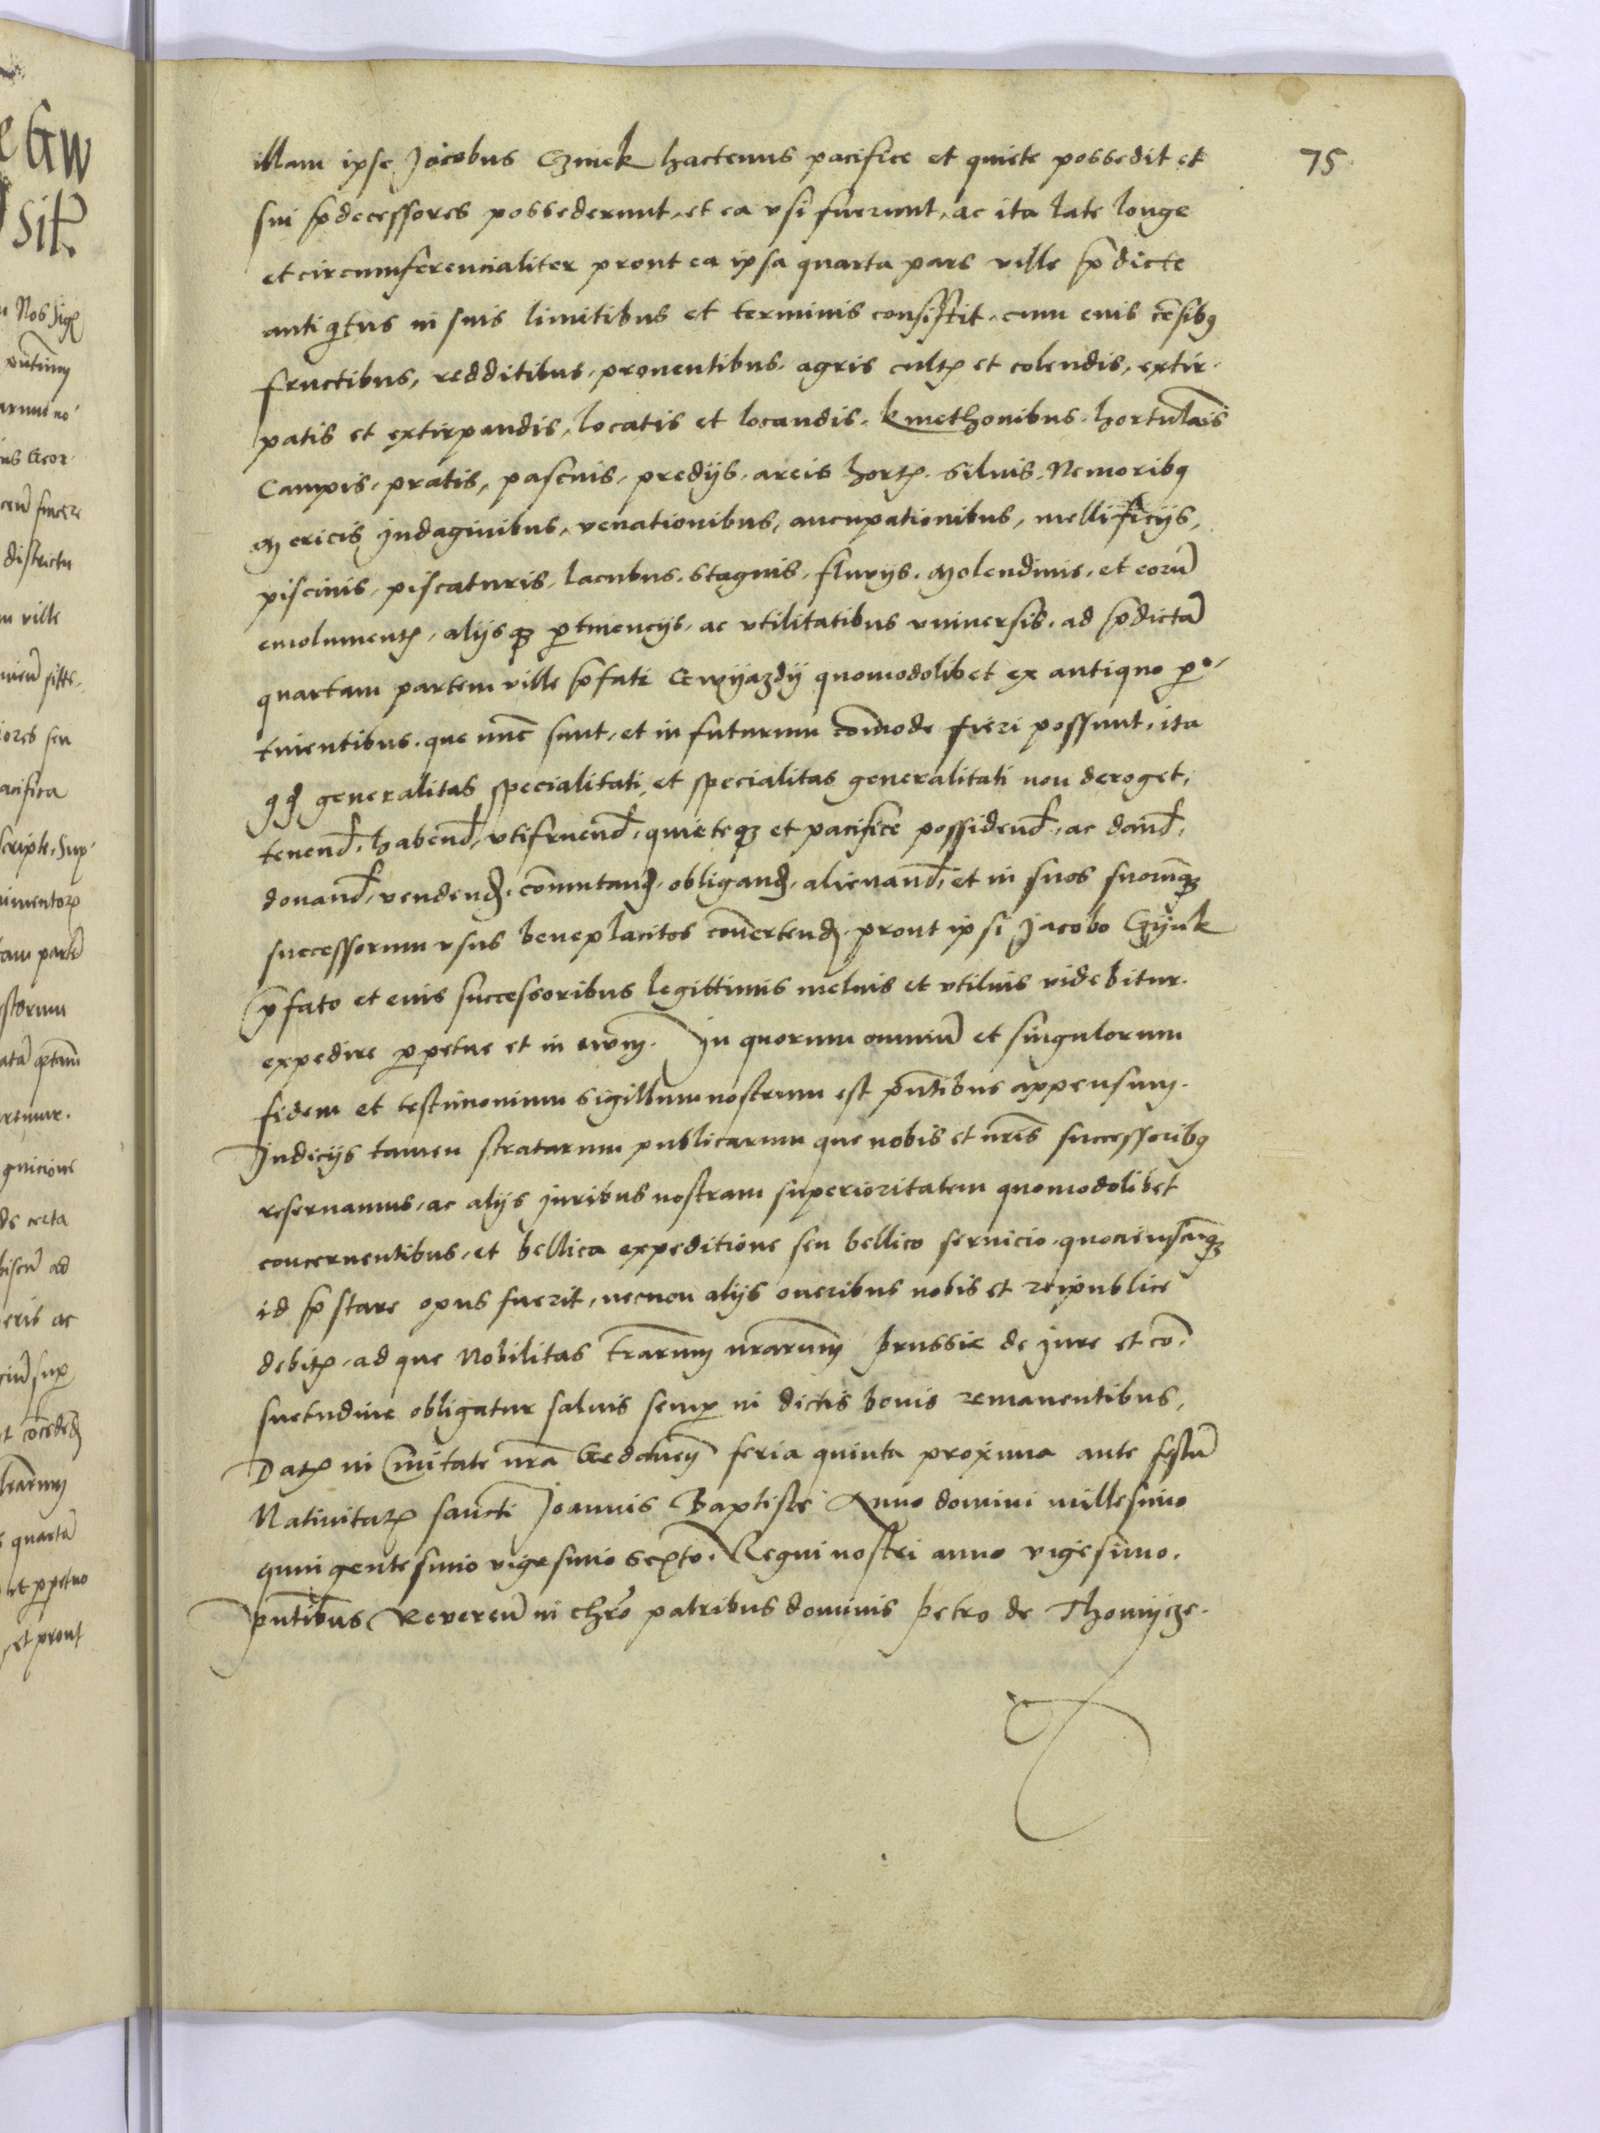 75
illam ipse Jacobus Czniek hactenus pacifice et quiete possedit et
sui p̃decessores possederunt, et ea vsi fuerunt, ac ita late longe
et circumferencialiter prout ea ipsa quarta pars ville p̃dicte
antiq̃tus in suis limitibus et terminis consistit, cum eius cẽsibꝫ
fructibus, redditibus, prouentibus, agris cultꝭ et colendis, extir-
patis et extirpandis, locatis et locandis, kmethonibus, hortulãis
Campis, pratis, pascuis, predijs, areis hortꝭ, siluis, Nemoribꝫ
Mericis Jndaginibus, venationibus, aucupationibus, mellificijs,
piscinis, piscaturis, lacubus, stagnis, fluvijs, Molendinis, et eorũ
emolumentꝭ, alijsqꝫ ꝑtinencijs, ac vtilitatibus vniuersis, ad p̃dictã
quartam partem ville p̃fati Gwyazdy quomodolibet ex antiquo ꝑ-
tinentibus, que nũc sunt, et in futurum cõmode fieri possunt, ita
qđ generalitas specialitati, et specialitas generalitati non deroget,
tenend̃, habend̃, vtifruend̃, quieteqꝫ et pacifice possidend̃, ac dand̃,
donand̃, vendend̃, cõmutand̃, obligand̃, alienand̃, et in suos suorũqꝫ
successorum vsus beneplacitos cõuertend̃, prout ipsi Jacobo
p̃fato et eius successoribus legittimis melius et vtilius videbitur
expedire ꝑpetue et in ewm̃. Jn quorum omniũ et singulorum
fidem et testimonium sigillum nostrum est p̃ntibus appensum.
Judicijs tamen stratarum publicarum que nobis et nr̃is successoribꝫ
reseruamus, ac alijs juribus nostram superioritatem quomodolibet
concernentibus, et bellica expeditione seu bellico seruicio, quociensc̃unqꝫ
id p̃stare opus fuerit, necnon alijs oneribus nobis et reipublice
debitꝭ, ad que Nobilitas tr̃arum nr̃arum Prussie de jure et cõ-
suetudine obligatur saluis semꝑ in dictis bonis remanentibus,
Datꝭ in Ciuitate nr̃a Gedanẽ feria quinta proxima ante festũ
Natiuitatꝭ sancti Joannis Baptiste Anno domini millesimo
quingentesimo vigesimo sexto. Regni nostri anno vigesimo.
Pñtibus Reuereñ in chr̃o patribus dominis Petro de Thomijcze